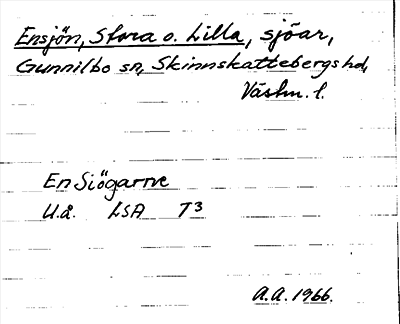 Ensjön, Stora o. Lilla, sjöar,
Gunnilbo sn, Skinnskattebergs hd,
Västm. l.
En Siögarne
U.å. LSA T3
A.A. 1966.